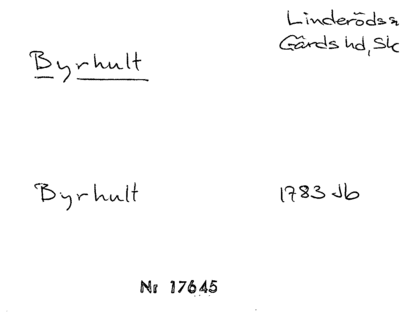 Linderöds s
Gärds hd, Sk
Byrhult
Byrhult 1783 Jb
Nr 17645